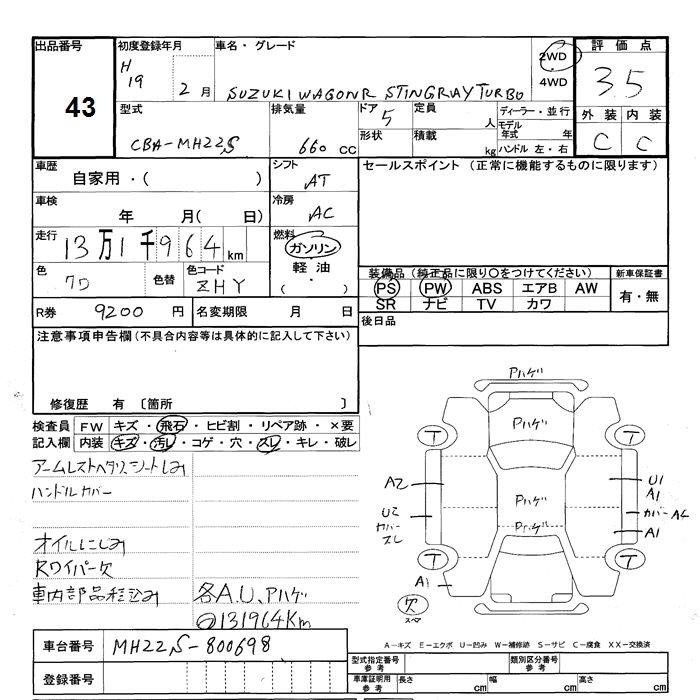 出品番号
43
初度登録年月
H
19
2月
車名・グレード
SUZUKI WAGONR STINGRAY TURBO
2WD
4WD
評価点
3.5
外装 内装
C C
型式
CBA-MH22S
排気量
660 CC
ドア 5
形状
定員
人
積載
kg
ディーラー・並行
モデル年式 年
ハンドル 左・右
車歴
自家用・( )
シフト
AT
セールスポイント (正常に機能するものに限ります)
車検
年 月( 日)
冷房
AC
走行
13万1千964km
燃料
ガソリン
軽油
( ・ )
色
色替
色コード
ZHY
装備品 (純正品に限り〇をつけてください)
PS PW ABS エアB AW
SR ナビ TV カワ
新車保証書
有・無
R券 9200 円
名変期限 月 日
後日品
注意事項申告欄(不具合内容等は具体的に記入して下さい)
修復歴 有 〔箇所 〕
検査員記入欄
FW キズ・飛石・ヒビ割・リペア跡・×要
内装 キズ・汚レ・コゲ・穴・スレ・キレ・破レ
アームレストヘタリ、シートしみ
ハンドルカバー
オイルにじみ
Rワイパー欠
車内部品積込み
各A.U、Pハゲ
131964Km
Pハゲ
Pハゲ
Pハゲ
Pハゲ
T T
T T
A2
U2
カバー
スレ
A1
U1
A1
カバーA4
A1
欠
スペア
A-キズ E-エクボ U-凹み W-補修跡 S-サビ C-腐食 XX-交換済
車台番号
MH22S-800698
登録番号
型式指定番号
参考
類別区分番号
参考
車庫証明用
参考
長さ cm
幅 cm
高さ cm